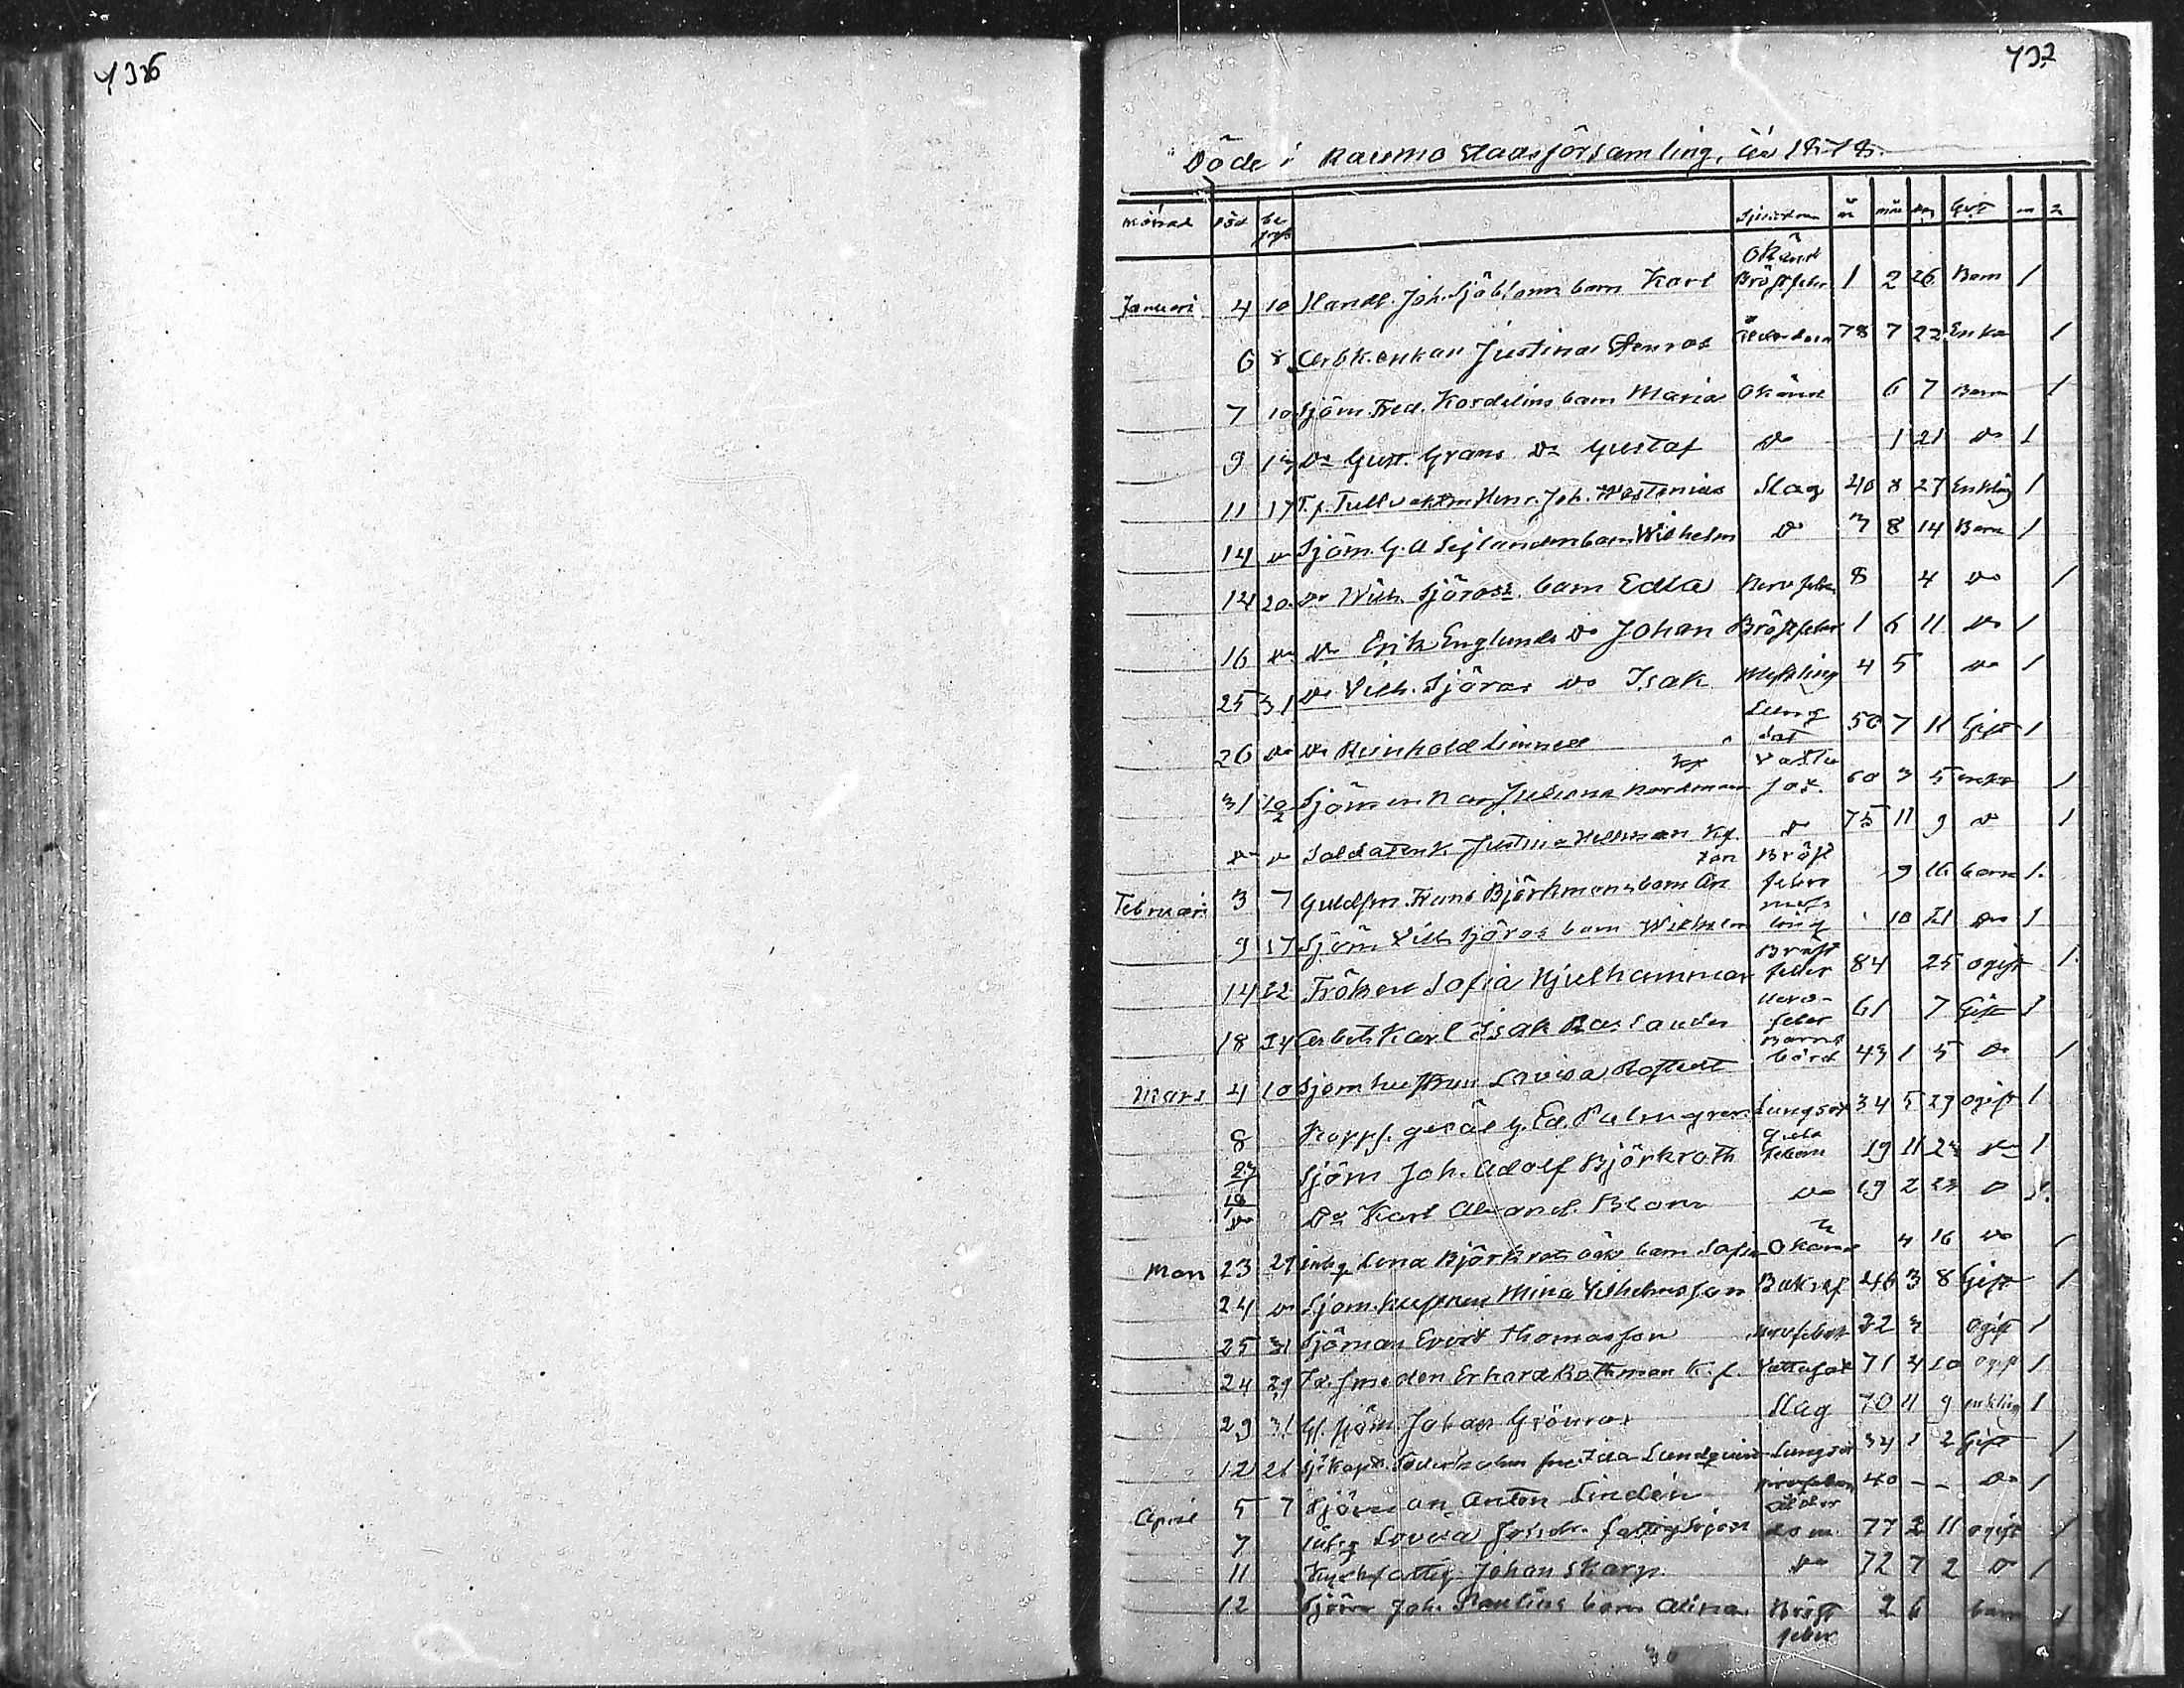 736
732
Döde i Raumo Stadsförsamling, år 1878.
Månad död begr Sjukdom år mån dag Gift m q
Januari 4 10 Handl. Joh. Sjöbloms barn Karl Okänd Bröstfeber 1 2 26 Barn 1
6 8 Arbk. enkan Justina Stenros Ålderdom 78 7 22 Enka 1
7 10 Sjöm. Fred. Kordelins barn Maria Okänd 6 7 Barn 1
9 13 Do Gust. Grans Do Gustaf Do 1 21 Do 1
11 17 T.f. Tullvaktm Henr. Joh. Westenius Slag 40 8 27 Enkling 1
14 do Sjöm. G. A. Seglanders barn Wilhelm Do 3 8 14 Barn 1
14 20 Do Wilh. Sjöros barn Edla Nervfeber 8 4 Do 1
16 Do Do Erik Englunds Do Johan Bröstfeber 1 6 11 Do 1
25 31 Do Vilh. Sjöros Do Isak Messling 4 5 Do 1
26 Do Do Reinhold Linnell Lung sot 50 7 11 Gift 1
31 10/2 Sjöm enkan Juliana Nordman Vattu sot. 60 3 5 enka 1
Do Do Soldatenk. Justina Hellman kf. Do 75 11 9 Do 1
Februari 3 7 Guldsm. Frans Björkmans barn An ton Bröst feber 9 16 barn 1.
9 17 Sjöm Vilh. Sjöros barn Wilhelm Mess ling 10 21 Do 1
14 22 Fröken Sofia Hjulhammar Bröst feber 84 25 ogift 1.
18 24 Arbets Karl Isak Roslander Nerv- feber 61 7 Gift 1
Mars 4 10 Sjöm hustrun Lovisa Rostedt Barns börd 43 1 5 Do 1
8 Kopps. gesäl G. Ed. Palmgren Lungsot 34 5 29 ogift 1
27/10 Sjöm Joh. Adolf Björkroth Gula febern 19 11 Do 1
Do Do Karl Alexand. Blom Do 19 2 23 Do 1.
Mars 23 27 inhy Lena Björkrots oäk barn Sofia Okänd 4 16 Do 1
24 Do Sjöm. hustrun Mina Vilhelmsson 46 3 8 Gift 1
25 31 Sjöman Evert Thomasson Nervfeber 22 3 Ogift 1
24 29 F.d. smeden Erhard Rothman K.f. Vattusot 71 4 10 ogift 1
29 31 Gl. sjöm Johan Grönros Slag 70 11 9 enkling 1
12 21 Sj. Kapt. Söderholm fru Ida Lundqvist Lungsot 34 1 2 Gift 1
April 5 7 Sjöman Anton Lindén Nervfeber 40 - - Do 1
7 inhy Lovisa Johsdr. Ålder dom 77 2 11 ogift 1
11 Kyrkfattig Johan Skarp. Do 72 7 2 Do 1
12 Sjöm Joh. Paulins barn Alina Bröst feber 2 6 barn 1
30